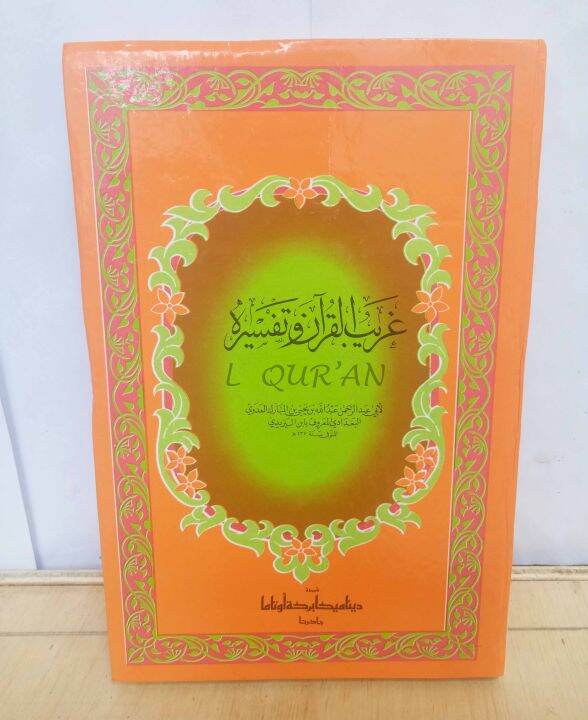 غريب القرآن وتفسيره
L QUR'AN
لأبي عبد الرحمن عبد الله بن يحيى بن المبارك العدوي
البغدادي المعروف بابن اليزيدي
المتوفى سنة ٢٣٧ هـ
شركة
ديناميكا بركة أوتاما
جاكرتا